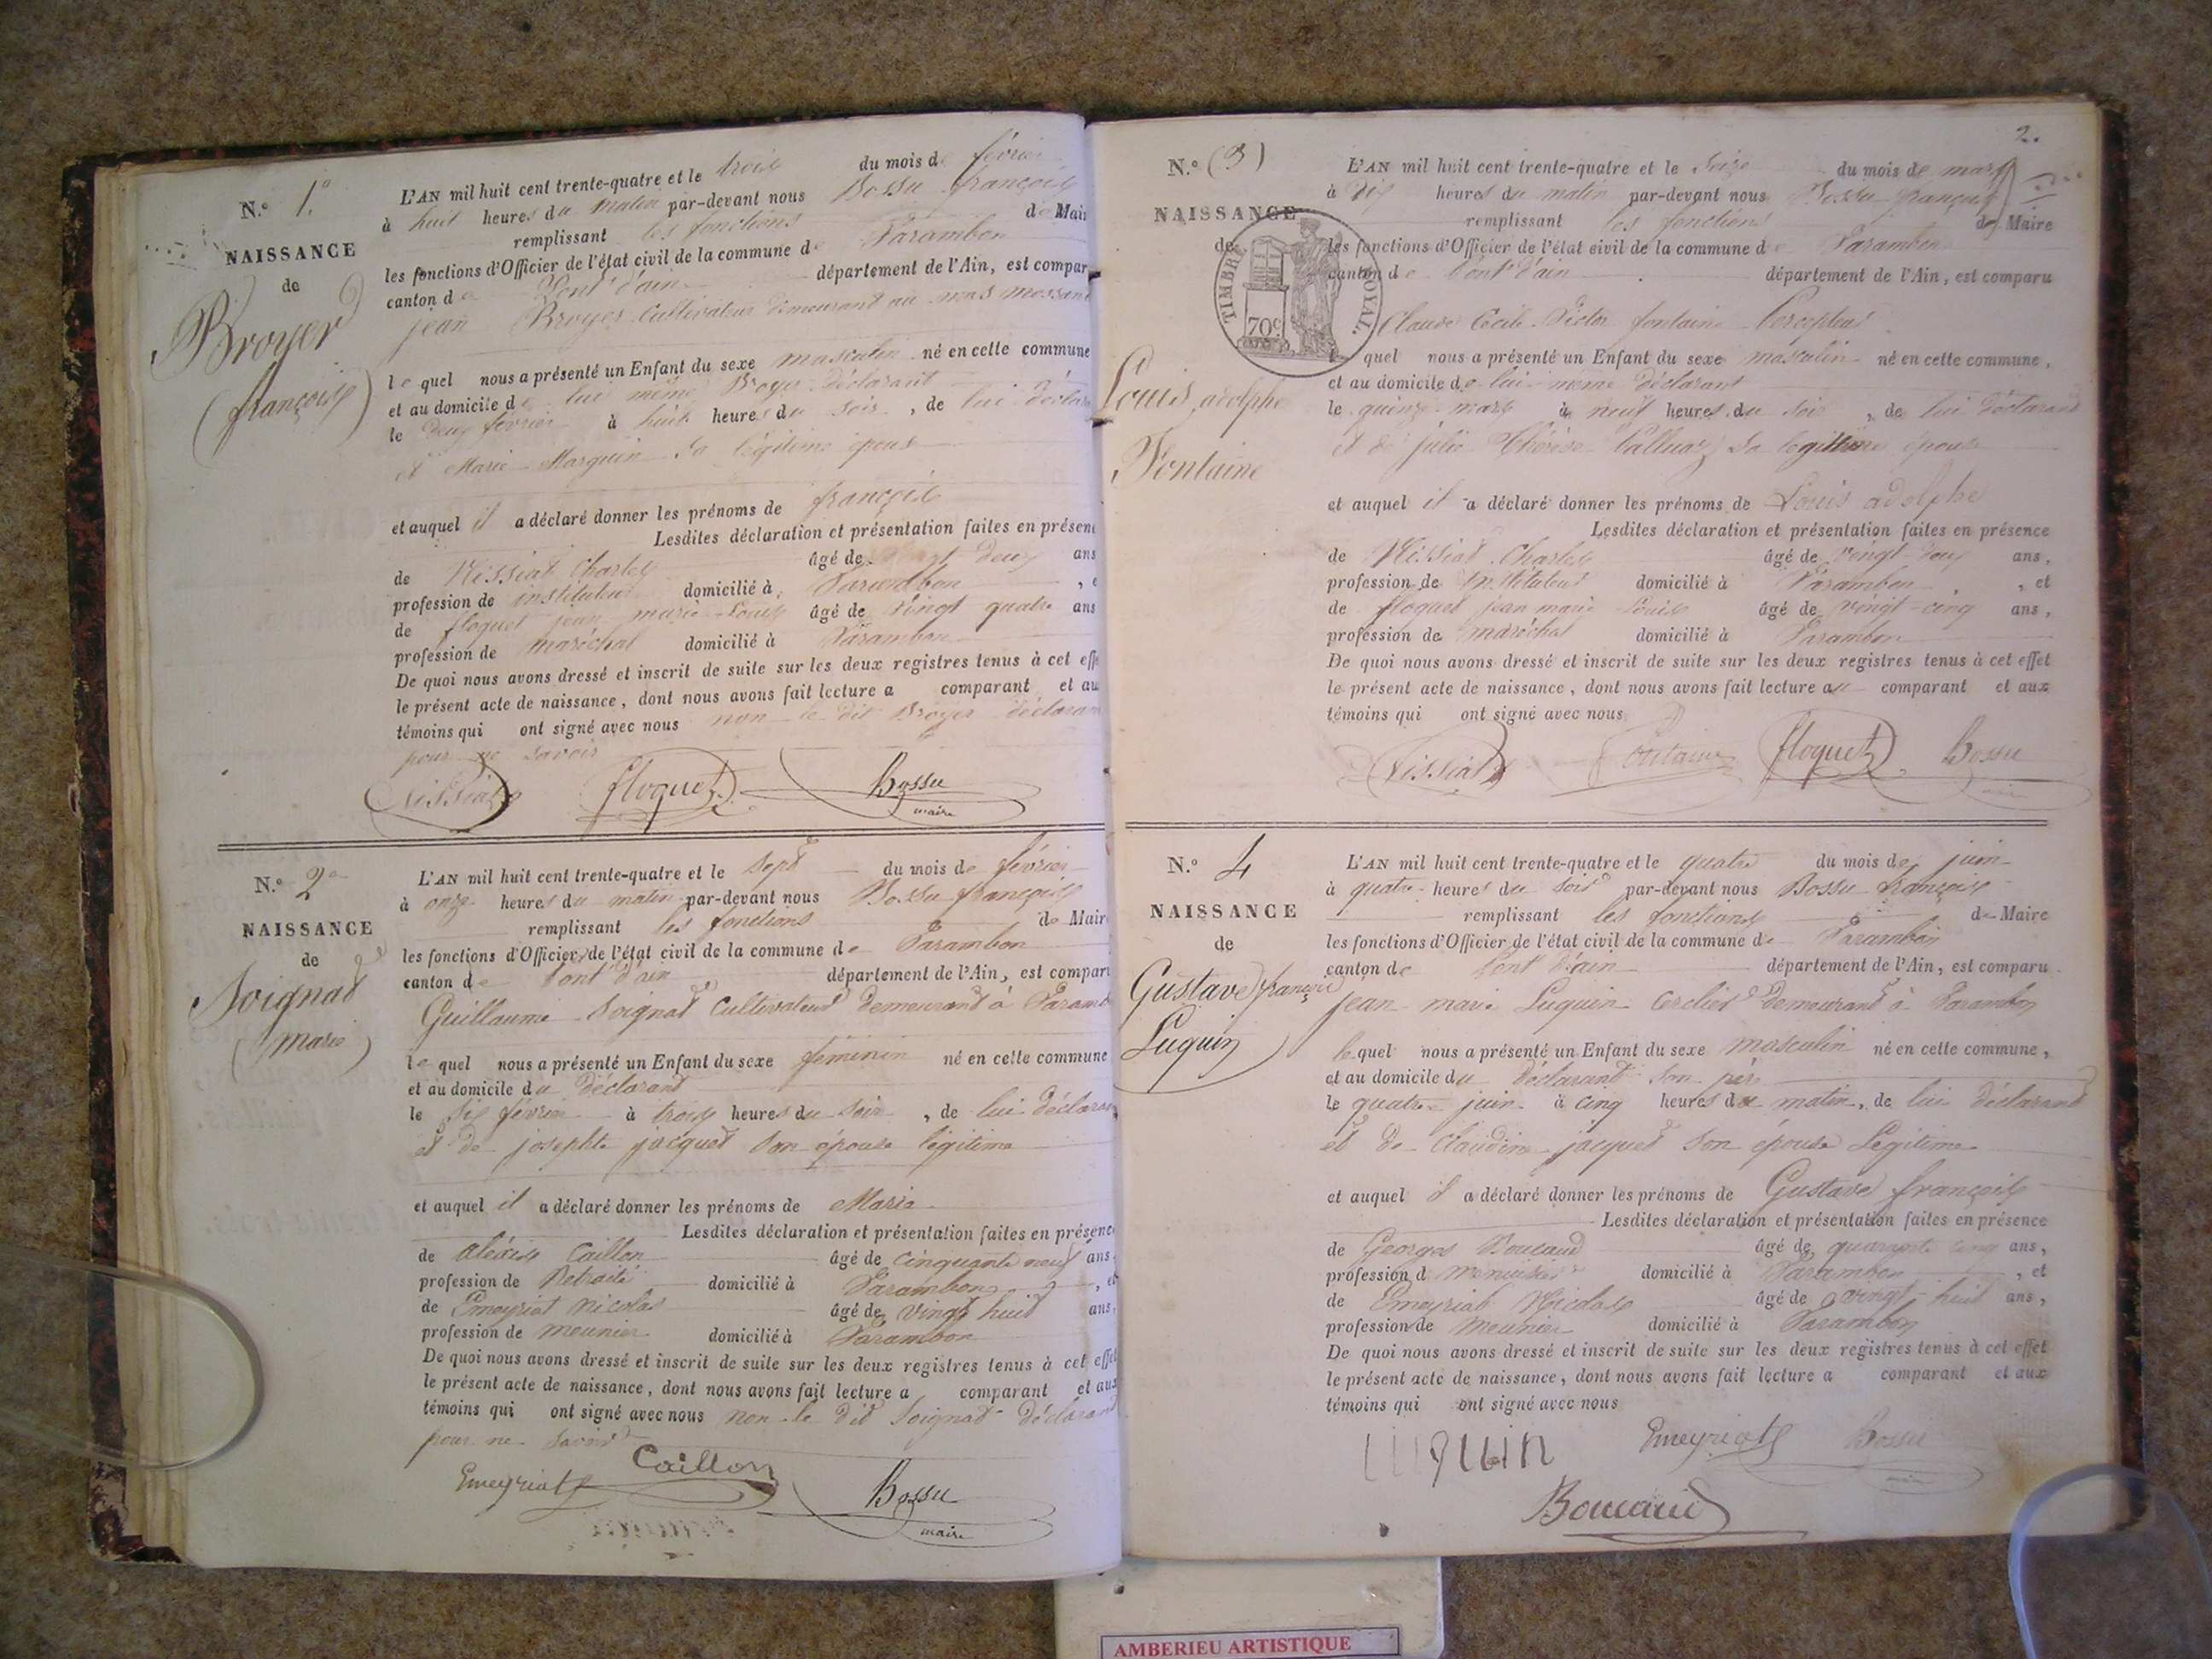 N.o 1.o
NAISSANCE
de
Broyer
(françois)
L'AN mil huit cent trente-quatre et le trois du mois de février
à huit heures du matin par-devant nous Bossu françois
remplissant les fonctions de Mair
les fonctions d'Officier de l'état civil de la commune de Varambon
canton de Pont d'ain département de l'Ain, est compar
jean Broyer Cultivateur demeurant au mas
le quel nous a présenté un Enfant du sexe masculin né en cette commune
et au domicile de lui même Broyer déclarant
le deux février à huit heures du soir, de lui déclar
et Marie Marguin sa légitime épouse
et auquel il a déclaré donner les prénoms de françois
Lesdites déclaration et présentation faites en présen
de Nissiat Charles âgé de vingt deux ans
profession de instituteur domicilié à Varambon, e
de floquet jean marie Louis âgé de vingt quatre ans
profession de maréchal domicilié à Varambon
De quoi nous avons dressé et inscrit de suite sur les deux registres tenus à cet effe
le présent acte de naissance, dont nous avons fait lecture a comparant et au
témoins qui ont signé avec nous non le dit Broyer déclaran
pour ne savoir
Nissiat floquet Bossu
maire
N.o 2
NAISSANCE
de
Soignat
(marie)
L'AN mil huit cent trente-quatre et le sept du mois de février
à onze heures du matin par-devant nous Bossu françois
remplissant les fonctions de Mair
les fonctions d'Officier de l'état civil de la commune de Varambon
canton de Pont d'ain département de l'Ain, est compar
Guillaume Soignat Cultivateur demeurant à Varamb
le quel nous a présenté un Enfant du sexe féminin né en cette commune
et au domicile du déclarant
le six février à trois heures du soir, de lui déclaran
et de josephte jacquet son épouse légitime
et auquel il a déclaré donner les prénoms de Marie
Lesdites déclaration et présentation faites en présenc
de alexis Caillon âgé de cinquante neuf ans,
profession de Retraité domicilié à Varambon, et
de Emeyriat nicolas âgé de vingt huit ans,
profession de meunier domicilié à Varambon
De quoi nous avons dressé et inscrit de suite sur les deux registres tenus à cet effet
le présent acte de naissance, dont nous avons fait lecture a comparant et aux
témoins qui ont signé avec nous non le dit Soignat déclarant
pour ne savoir
Caillon
Emeyriat Bossu
maire
2.
N.o (3)
NAISSANCE
de
Louis adolphe
Fontaine
TIMBRE ROYAL.
70c
L'AN mil huit cent trente-quatre et le seize du mois de mars
à dix heures du matin par-devant nous Bossu françois
remplissant les fonctions de Maire
les fonctions d'Officier de l'état civil de la commune de Varambon
canton de Pont d'ain département de l'Ain, est comparu
Claude Cécile Victor fontaine Percepteur
le quel nous a présenté un Enfant du sexe masculin né en cette commune,
et au domicile de lui même déclarant
le quinze mars à neuf heures du soir, de lui déclarant
et de julie Thérèse sa légitime épouse
et auquel il a déclaré donner les prénoms de Louis adolphe
Lesdites déclaration et présentation faites en présence
de Nissiat Charles âgé de vingt deux ans,
profession de instituteur domicilié à Varambon, et
de floquet jean marie Louis âgé de vingt-cinq ans,
profession de maréchal domicilié à Varambon
De quoi nous avons dressé et inscrit de suite sur les deux registres tenus à cet effet
le présent acte de naissance, dont nous avons fait lecture au comparant et aux
témoins qui ont signé avec nous
Nissiat fontaine floquet Bossu
maire
N.o 4
NAISSANCE
de
Gustave françois
Luquin
L'AN mil huit cent trente-quatre et le quatre du mois de juin
à quatre heures du soir par-devant nous Bossu françois
remplissant les fonctions de Maire
les fonctions d'Officier de l'état civil de la commune de Varambon
canton de Pont d'ain département de l'Ain, est comparu
jean marie Luquin Cerclier demeurant à Varambon
le quel nous a présenté un Enfant du sexe masculin né en cette commune,
et au domicile du déclarant son père
le quatre juin à cinq heures du matin, de lui déclarant
et de Claudine jacquet son épouse Légitime
et auquel il a déclaré donner les prénoms de Gustave françois
Lesdites déclaration et présentation faites en présence
de Georges Boucaud âgé de quarante cinq ans,
profession d menuisier domicilié à Varambon, et
de Emeyriat Nicolas âgé de vingt-huit ans,
profession de meunier domicilié à Varambon
De quoi nous avons dressé et inscrit de suite sur les deux registres tenus à cet effet
le présent acte de naissance, dont nous avons fait lecture a comparant et aux
témoins qui ont signé avec nous
Luquin Emeyriat Bossu
maire
Boucaud
AMBERIEU ARTISTIQUE